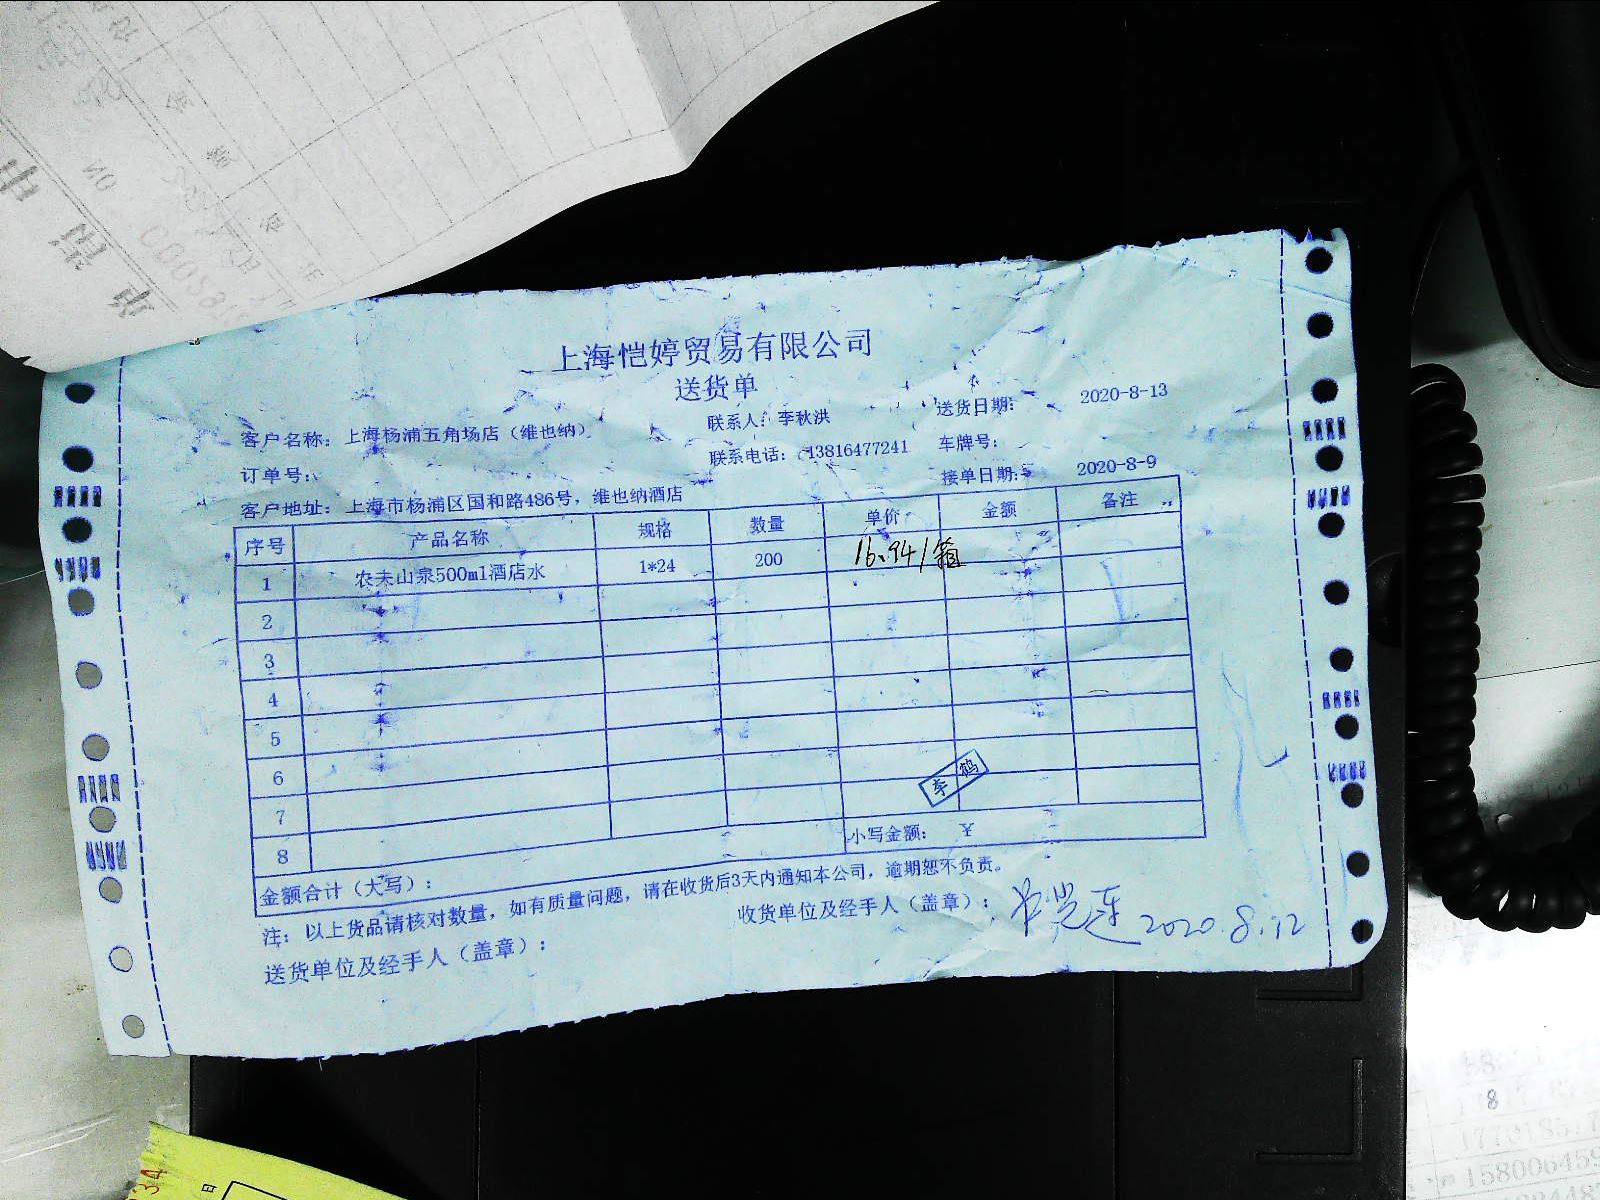 上海恺婷贸易有限公司
送货单
客户名称: 上海杨浦五角场店（维也纳） 联系人: 李秋洪 送货日期: 2020-8-13
订单号: 联系电话: 13816477241 车牌号:
客户地址: 上海市杨浦区国和路486号，维也纳酒店 接单日期: 2020-8-9
序号 产品名称 规格 数量 单价 金额 备注
1 农夫山泉500ml酒店水 1*24 200 16.94/箱
2
3
4
5
6
7
李鹤
8 小写金额: ¥
金额合计（大写）:
注: 以上货品请核对数量，如有质量问题，请在收货后3天内通知本公司，逾期恕不负责。
送货单位及经手人（盖章）: 收货单位及经手人（盖章）: 2020.8.12
NO